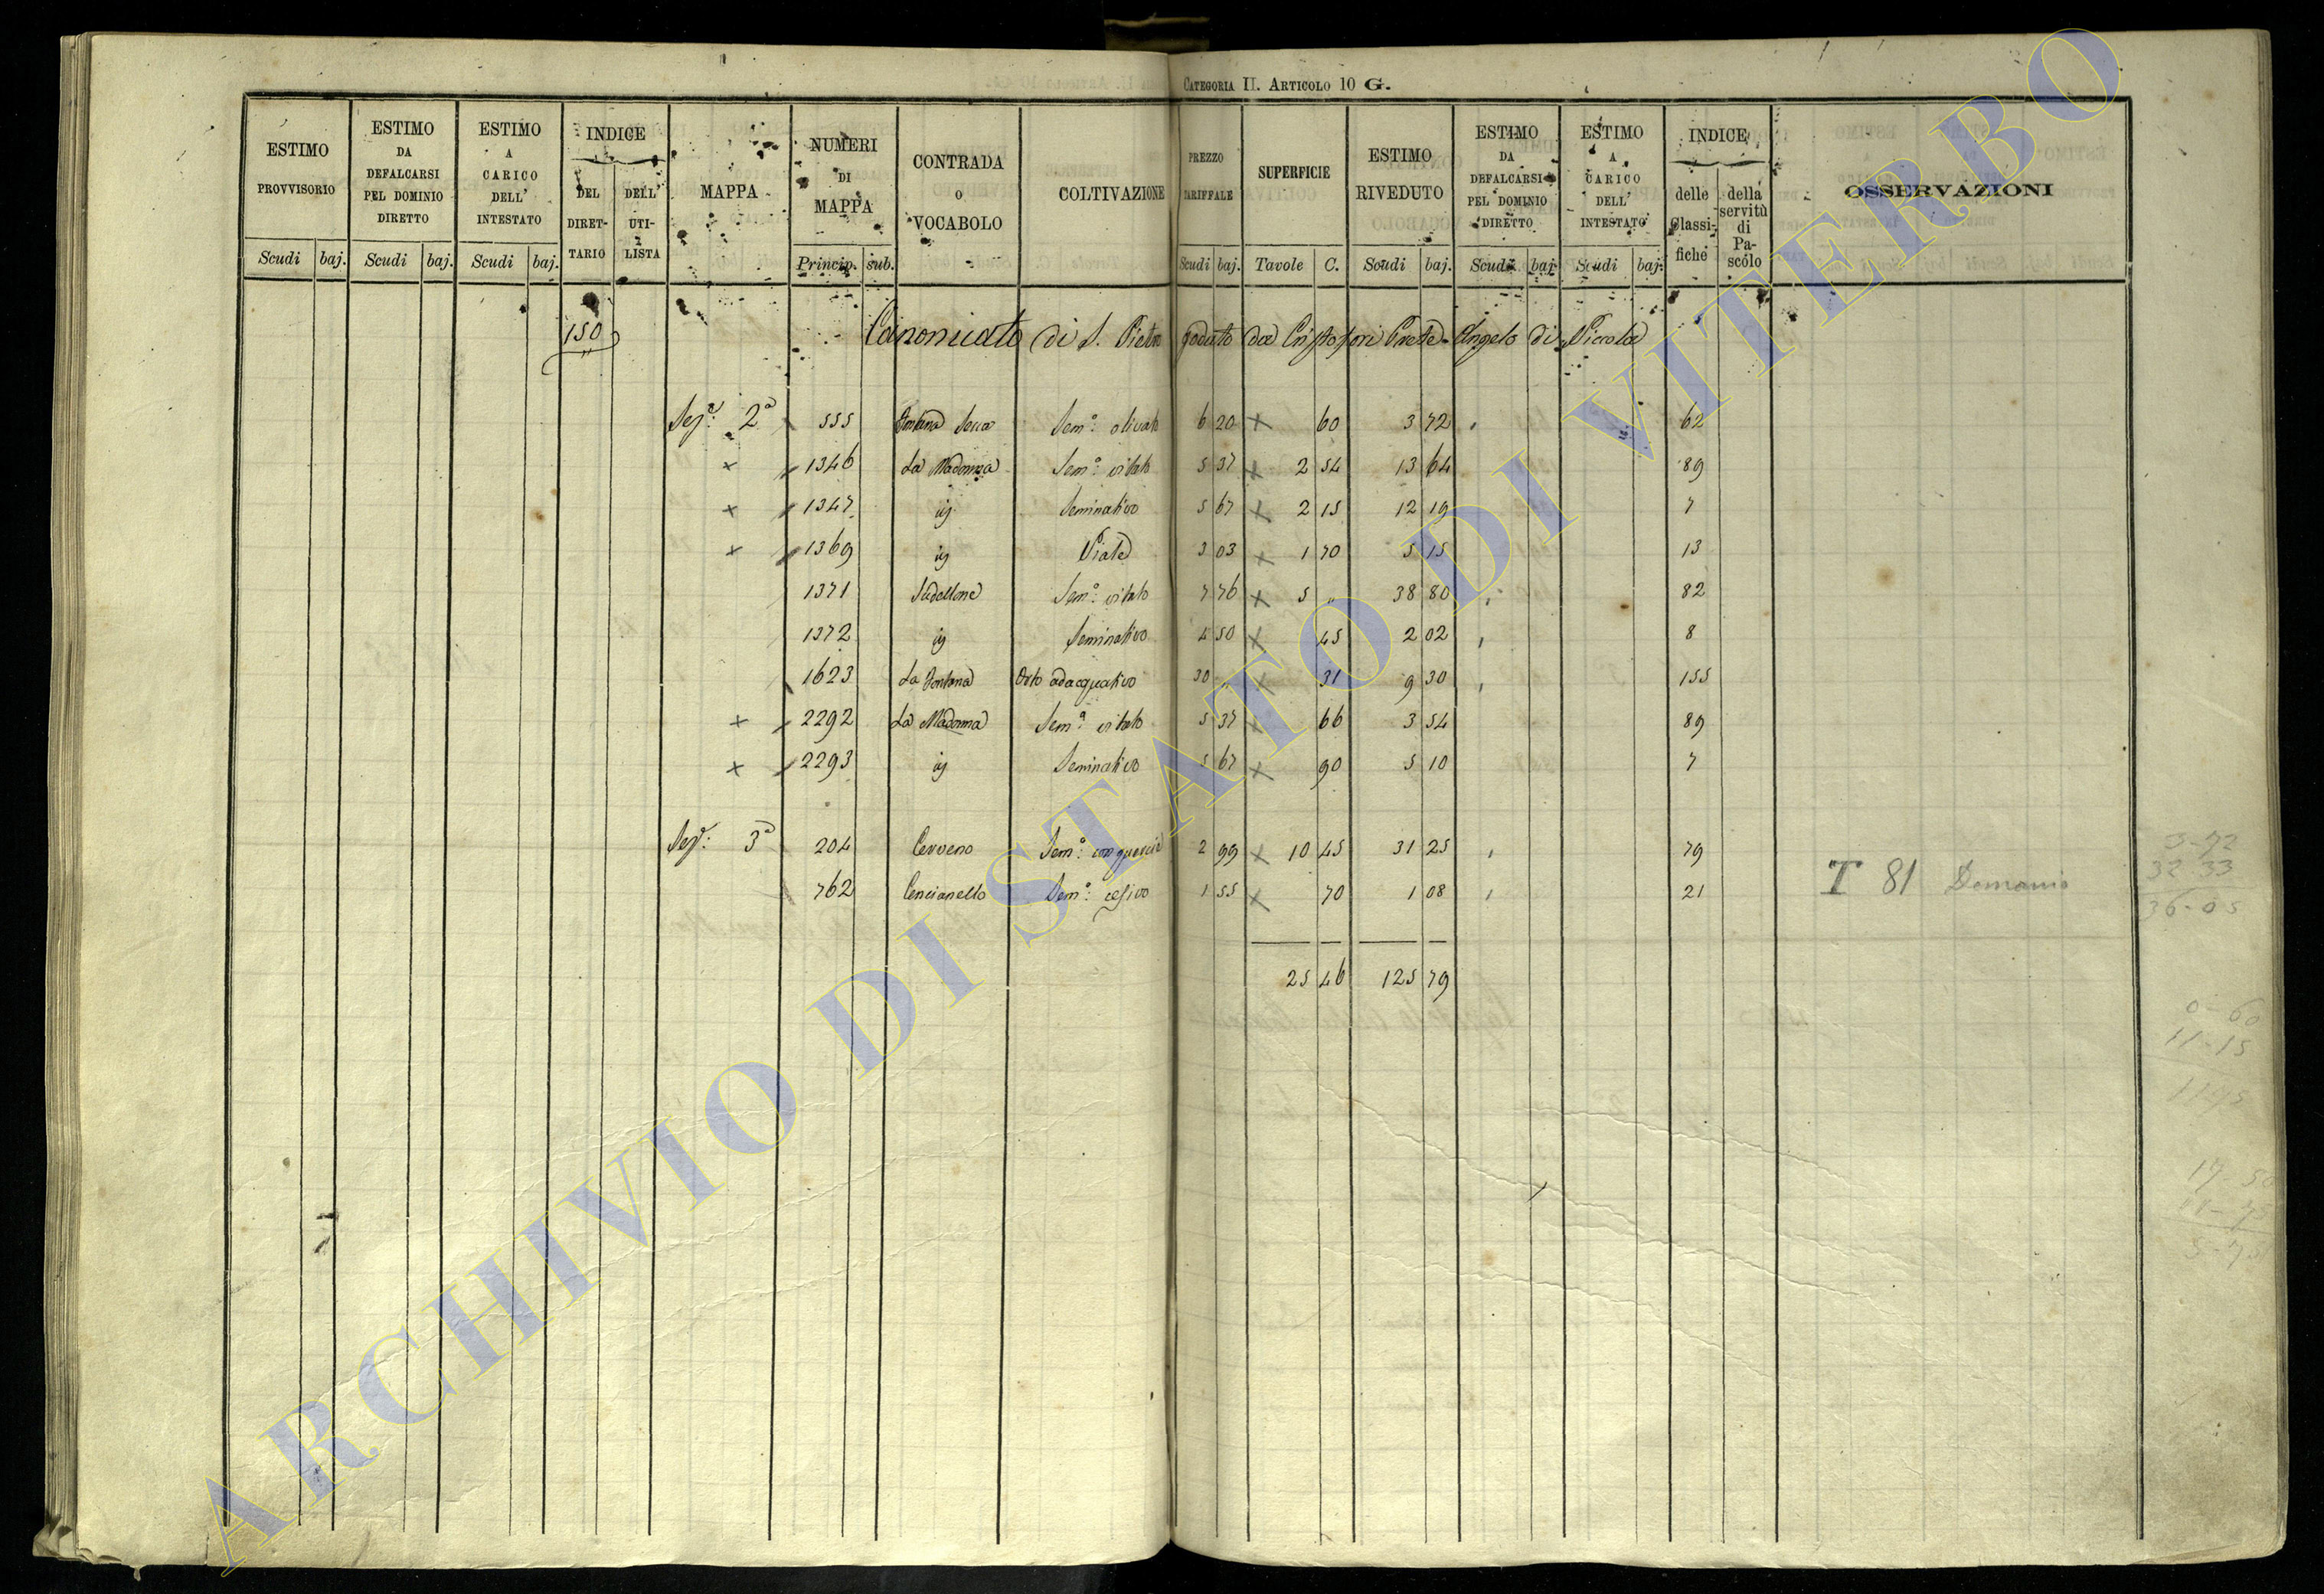 CATEGORIA II. ARTICOLO 10 G.
ESTIMO PROVVISORIO Scudi baj.
ESTIMO DA DEFALCARSI PEL DOMINIO DIRETTO Scudi baj.
ESTIMO A CARICO DELL' INTESTATO Scudi baj.
INDICE DEL DIRET- TARIO DELL' UTI- LISTA
MAPPA
NUMERI DI MAPPA Princip. sub.
CONTRADA o VOCABOLO
COLTIVAZIONE
PREZZO TARIFFALE Scudi baj.
SUPERFICIE Tavole C.
ESTIMO RIVEDUTO Scudi baj.
ESTIMO DA DEFALCARSI PEL DOMINIO DIRETTO Scudi baj.
ESTIMO A CARICO DELL' INTESTATO Scudi baj.
INDICE delle Classi- fiche della servitù di Pa- scolo
OSSERVAZIONI
150 Canonicato di S. Pietro goduto da Cristofori Prete Angelo di Nicola
Sez.e 2a 555 Fontana Secca Sem.o olivato 6 20 × 60 3 72 62
× 1346 La Madonna Sem.o vitato 5 37 × 2 54 13 64 89
× 1347 ij Seminativo 5 67 × 2 15 12 19 7
× 1369 ij 3 03 × 1 70 5 15 13
1371 Sem.o vitato 7 76 × 5 „ 38 80 82
1372 ij Seminativo 4 50 × 45 2 02 8
1623 La Fontana Orto adacquativo 30 „ × 31 9 30 155
× 2292 La Madonna Sem.o vitato 5 37 × 66 3 54 89
× 2293 ij Seminativo 5 67 × 90 5 10 7
Sez.e 3a 204 Cerreno Sem.o con quercie 2 99 × 10 45 31 25 79
762 Cencianello Sem.o cesivo 1 55 × 70 1 08 21 T 81 Demanio
25 46 125 79
3-72
32 33
36-05
0-60
11-15
1175
17 50
11-75
5-75
ARCHIVIO DI STATO DI VITERBO